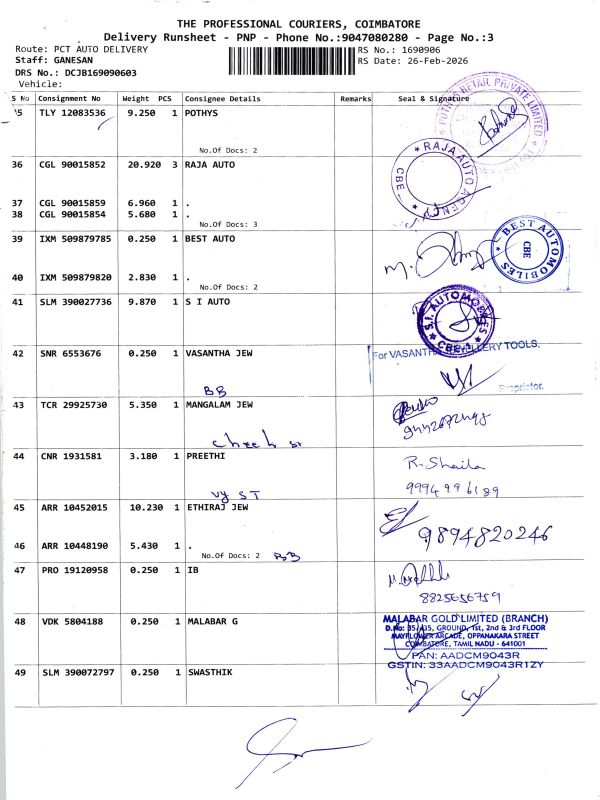 THE PROFESSIONAL COURIERS, COIMBATORE
Delivery Runsheet - PNP - Phone No.:9047080280 - Page No.:3
Route: PCT AUTO DELIVERY
RS No.: 1690906
Staff: GANESAN
RS Date: 26-Feb-2026
DRS No.: DCJB169090603
Vehicle:
S No Consignment No Weight PCS Consignee Details Remarks Seal & Signature
35 TLY 12083536 9.250 1 POTHYS
POTHYS RETAIL PRIVATE LIMITED
No.Of Docs: 2
36 CGL 90015852 20.920 3 RAJA AUTO
RAJA AUTO AGENCY CBE
37 CGL 90015859 6.960 1 .
38 CGL 90015854 5.680 1 .
No.Of Docs: 3
39 IXM 509879785 0.250 1 BEST AUTO
BEST AUTOMOBILES CBE
40 IXM 509879820 2.830 1 .
No.Of Docs: 2
41 SLM 390027736 9.870 1 S I AUTO
S.I. AUTOMOBILES CBE-1
42 SNR 6553676 0.250 1 VASANTHA JEW
For VASANTHA JEWELLERY TOOLS,
Proprietor.
BB
43 TCR 29925730 5.350 1 MANGALAM JEW
44 CNR 1931581 3.180 1 PREETHI
R. Shaila
9994996189
vy ST
45 ARR 10452015 10.230 1 ETHIRAJ JEW
9894820246
46 ARR 10448190 5.430 1 .
No.Of Docs: 2 BB
47 PRO 19120958 0.250 1 IB
8825656759
48 VDK 5804188 0.250 1 MALABAR G
MALABAR GOLD LIMITED (BRANCH)
D.No: 35/435, GROUND, 1st, 2nd & 3rd FLOOR
MAYFLOWER ARCADE, OPPANAKARA STREET
COIMBATORE, TAMIL NADU - 641001
PAN: AADCM9043R
GSTIN: 33AADCM9043R1ZY
49 SLM 390072797 0.250 1 SWASTHIK